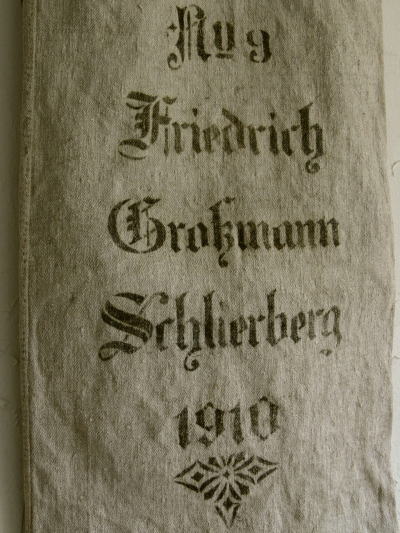 No 9
Friedrich
Großmann
Schlierberg
1910